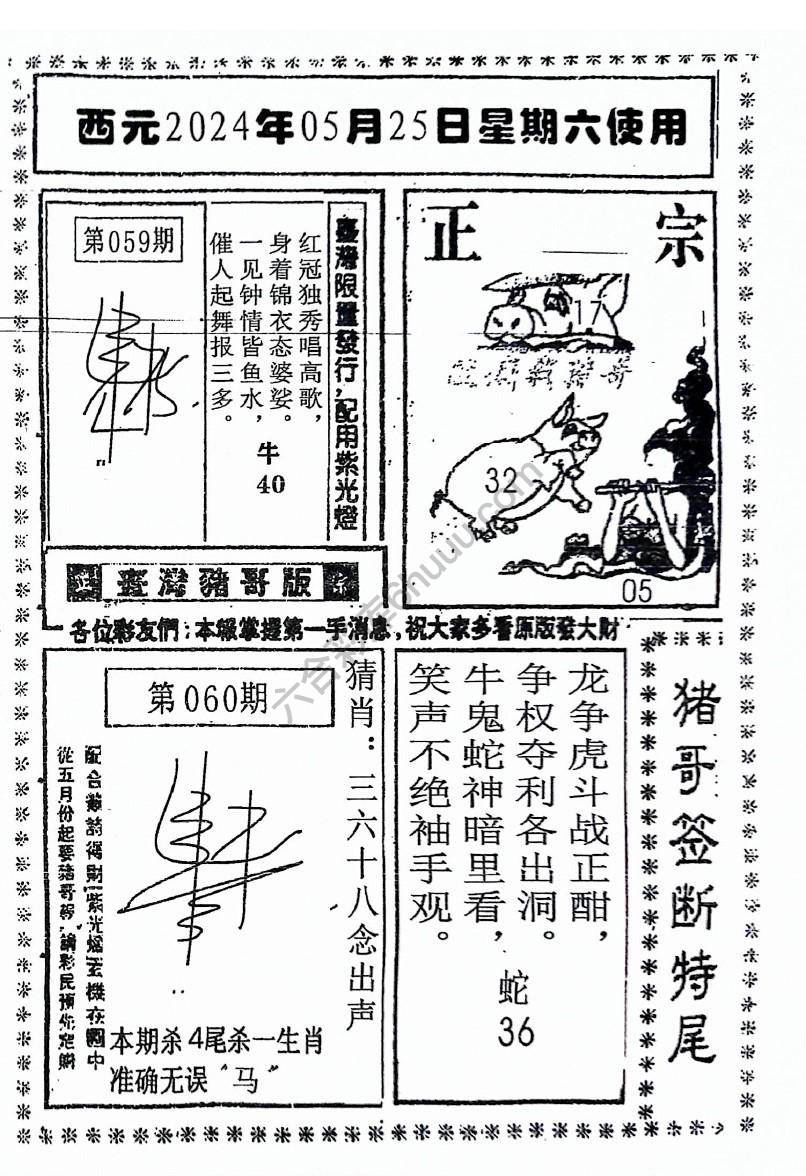 西元2024年05月25日星期六使用
第059期
红冠独秀唱高歌，
身着锦衣态婆娑。
一见钟情皆鱼水，
催人起舞报三多。
牛
40
臺灣限量發行，配用紫光燈
臺灣豬哥版
正宗
17
32
05
各位彩友們：本報掌握第一手消息，祝大家多看原版發大財
第060期
猜肖：三六十八念出声
從五月份起要豬哥報，請彩民預先定購
本期杀4尾杀一生肖
准确无误“马”
龙争虎斗战正酣，
争权夺利各出洞。
牛鬼蛇神暗里看，
笑声不绝袖手观。
蛇
36
猪哥签断特尾